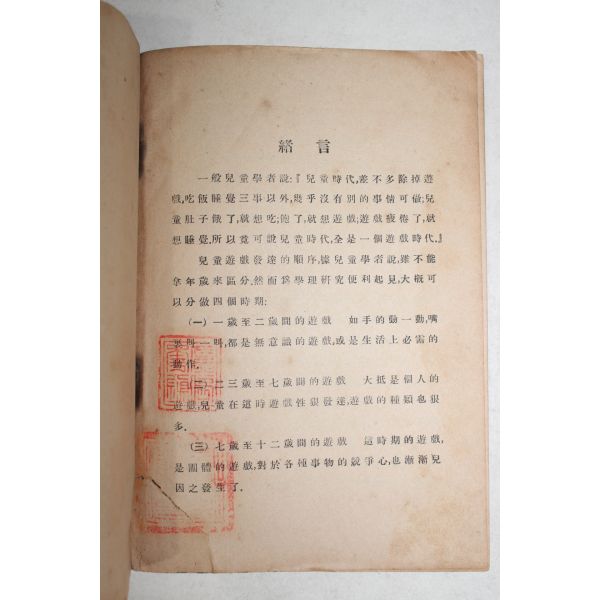 緒言
一般兒童學者說:『兒童時代,差不多除掉遊
戲,吃飯睡覺三事以外,幾乎沒有別的事情可做;兒
童肚子餓了,就想吃;飽了,就想遊戲;遊戲疲倦了,就
想睡覺,所以竟可說兒童時代,全是一個遊戲時代,』
兒童遊戲發達的順序,據兒童學者說,雖不能
拿年歲來區分,然而爲學理研究便利起見,大概可
以分做四個時期:
(一)一歲至二歲間的遊戲 如手的動一動,嘴
裏叫一叫,都是無意識的遊戲,或是生活上必需的
動作.
(二)二三歲至七歲間的遊戲 大抵是個人的
遊戲,兒童在這時遊戲性狠發達,遊戲的種類也狠
多.
(三)七歲至十二歲間的遊戲 這時期的遊戲,
是團體的遊戲,對於各種事物的競爭心,也漸漸兒
因之發生了.